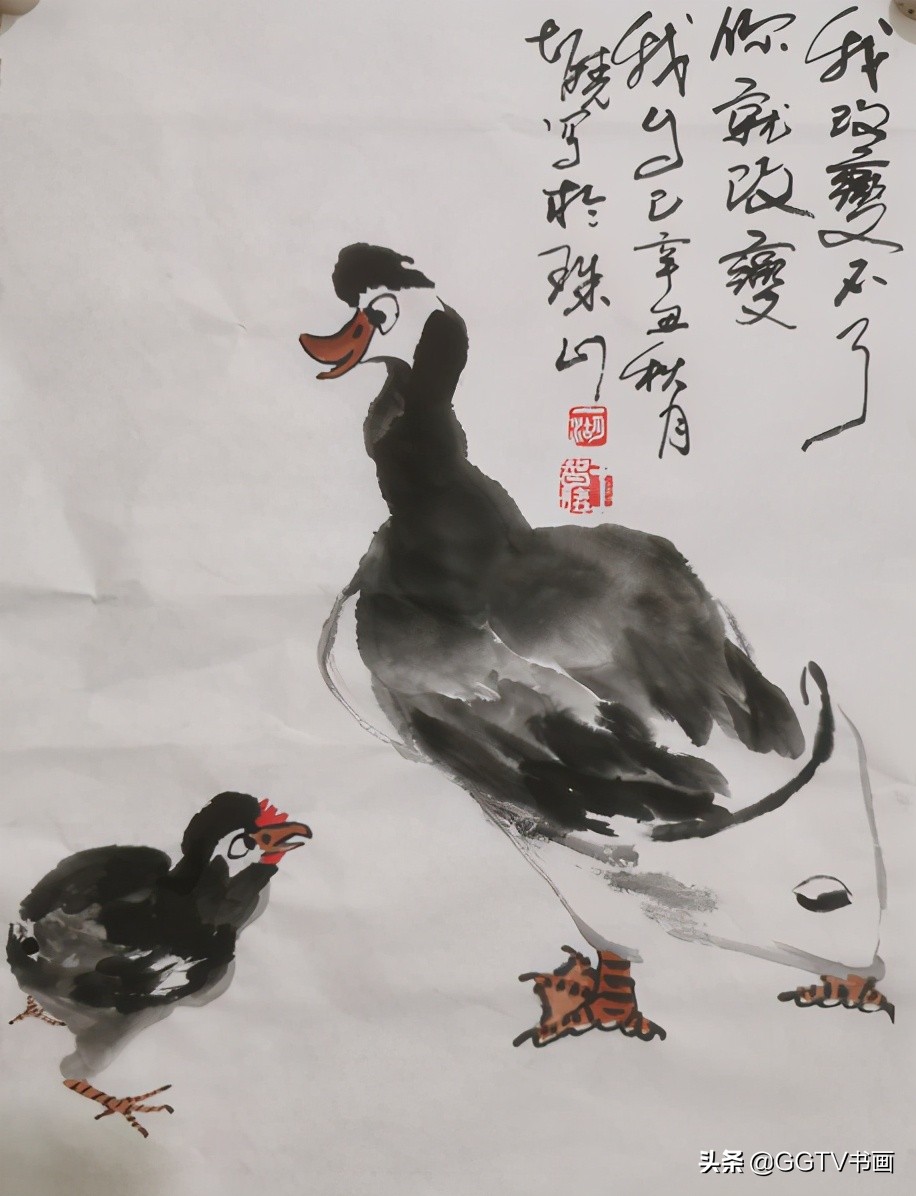 我改變不了
你就改變
我自己辛丑秋月
写於珠山
头条 @GGTV书画